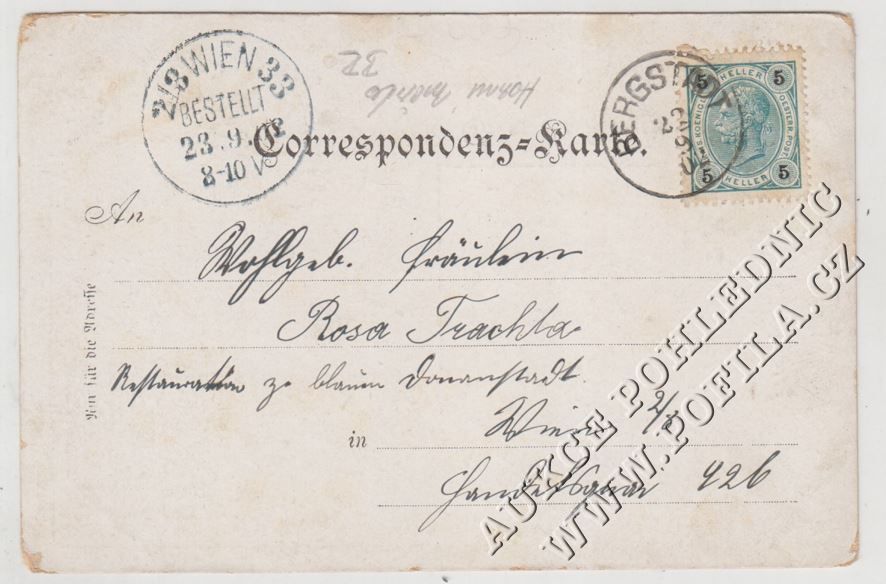 2/3 WIEN 33
BESTELLT
23.9.02
8-10 V
Horní
BERGSTADT
5 HELLER 5
5 HELLER 5
Correspondenz=Karte.
An
Wohlgeb. Fräulein
Rosa Trachta
Restauration z. blauen Donaustadt.
in Wien 2/
Handelsquai 426
Nur für die Adresse
AUKCE POHLEDNIC
WWW.POFILA.CZ